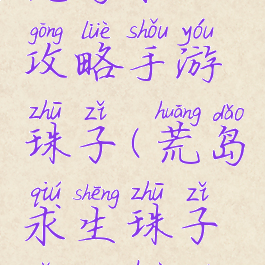 gōng lüè shǒu yóu
攻略手游
zhū zǐ huāng dǎo
珠子(荒岛
qiú shēng zhū zǐ
求生珠子